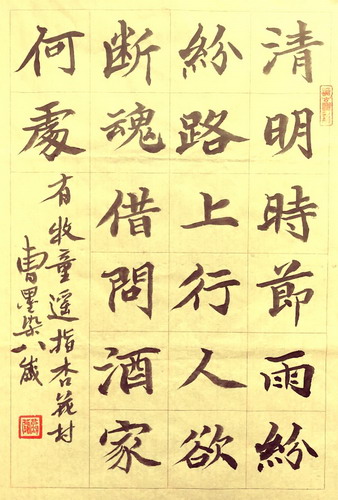 清明時節雨紛
紛路上行人欲
斷魂借問酒家
何處
有牧童遥指杏花村
曹墨染八歲